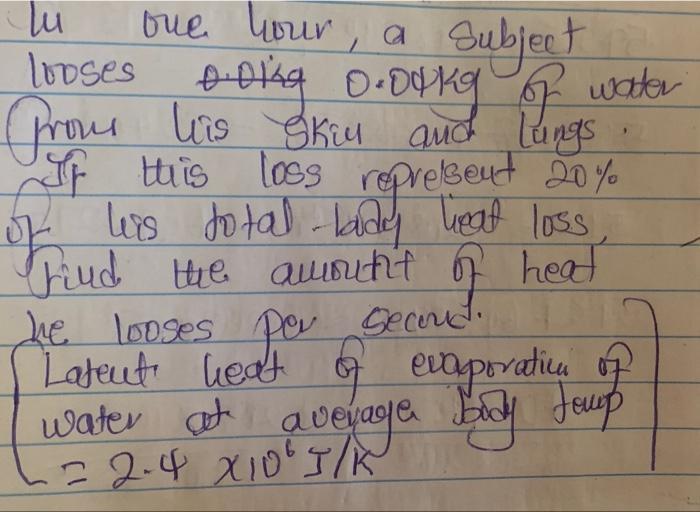 In one hour, a subject
looses 0.01kg 0.04kg of water
from his skin and lungs.
If this loss represent 20%
of his total body heat loss,
find the amount of heat
he looses per second.
[Latent heat of evaporation of
water at average body temp
= 2.4 x10⁶ J/K]